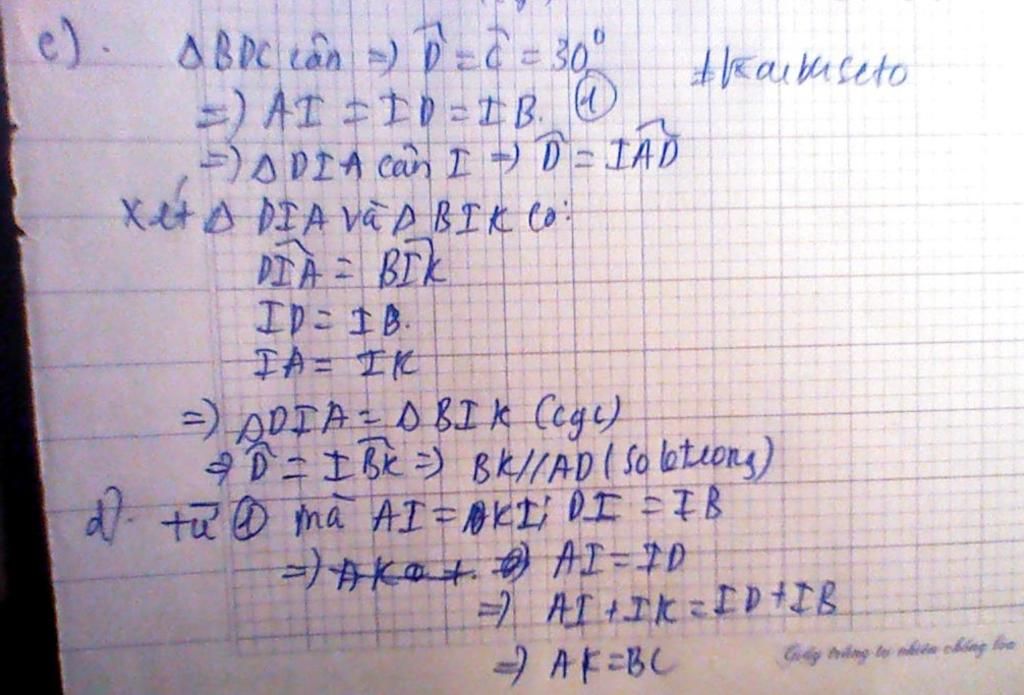 c). ΔBDC cân => D̂ = Ĉ = 30°
=> AI = ID = IB. ①
=> ΔDIA cân I => D̂ = IÂD
Xét Δ DIA và Δ BIK có:
DÎA = BÎK
ID = IB.
IA = IK
=> ΔDIA = ΔBIK (cgc)
=> D̂ = IB̂K => BK//AD (so le trong)
d). từ ① mà AI = KI; DI = IB
=> AI = ID
=> AI + IK = ID + IB
=> AK = BC
Giấy trắng tự nhiên chống lóa